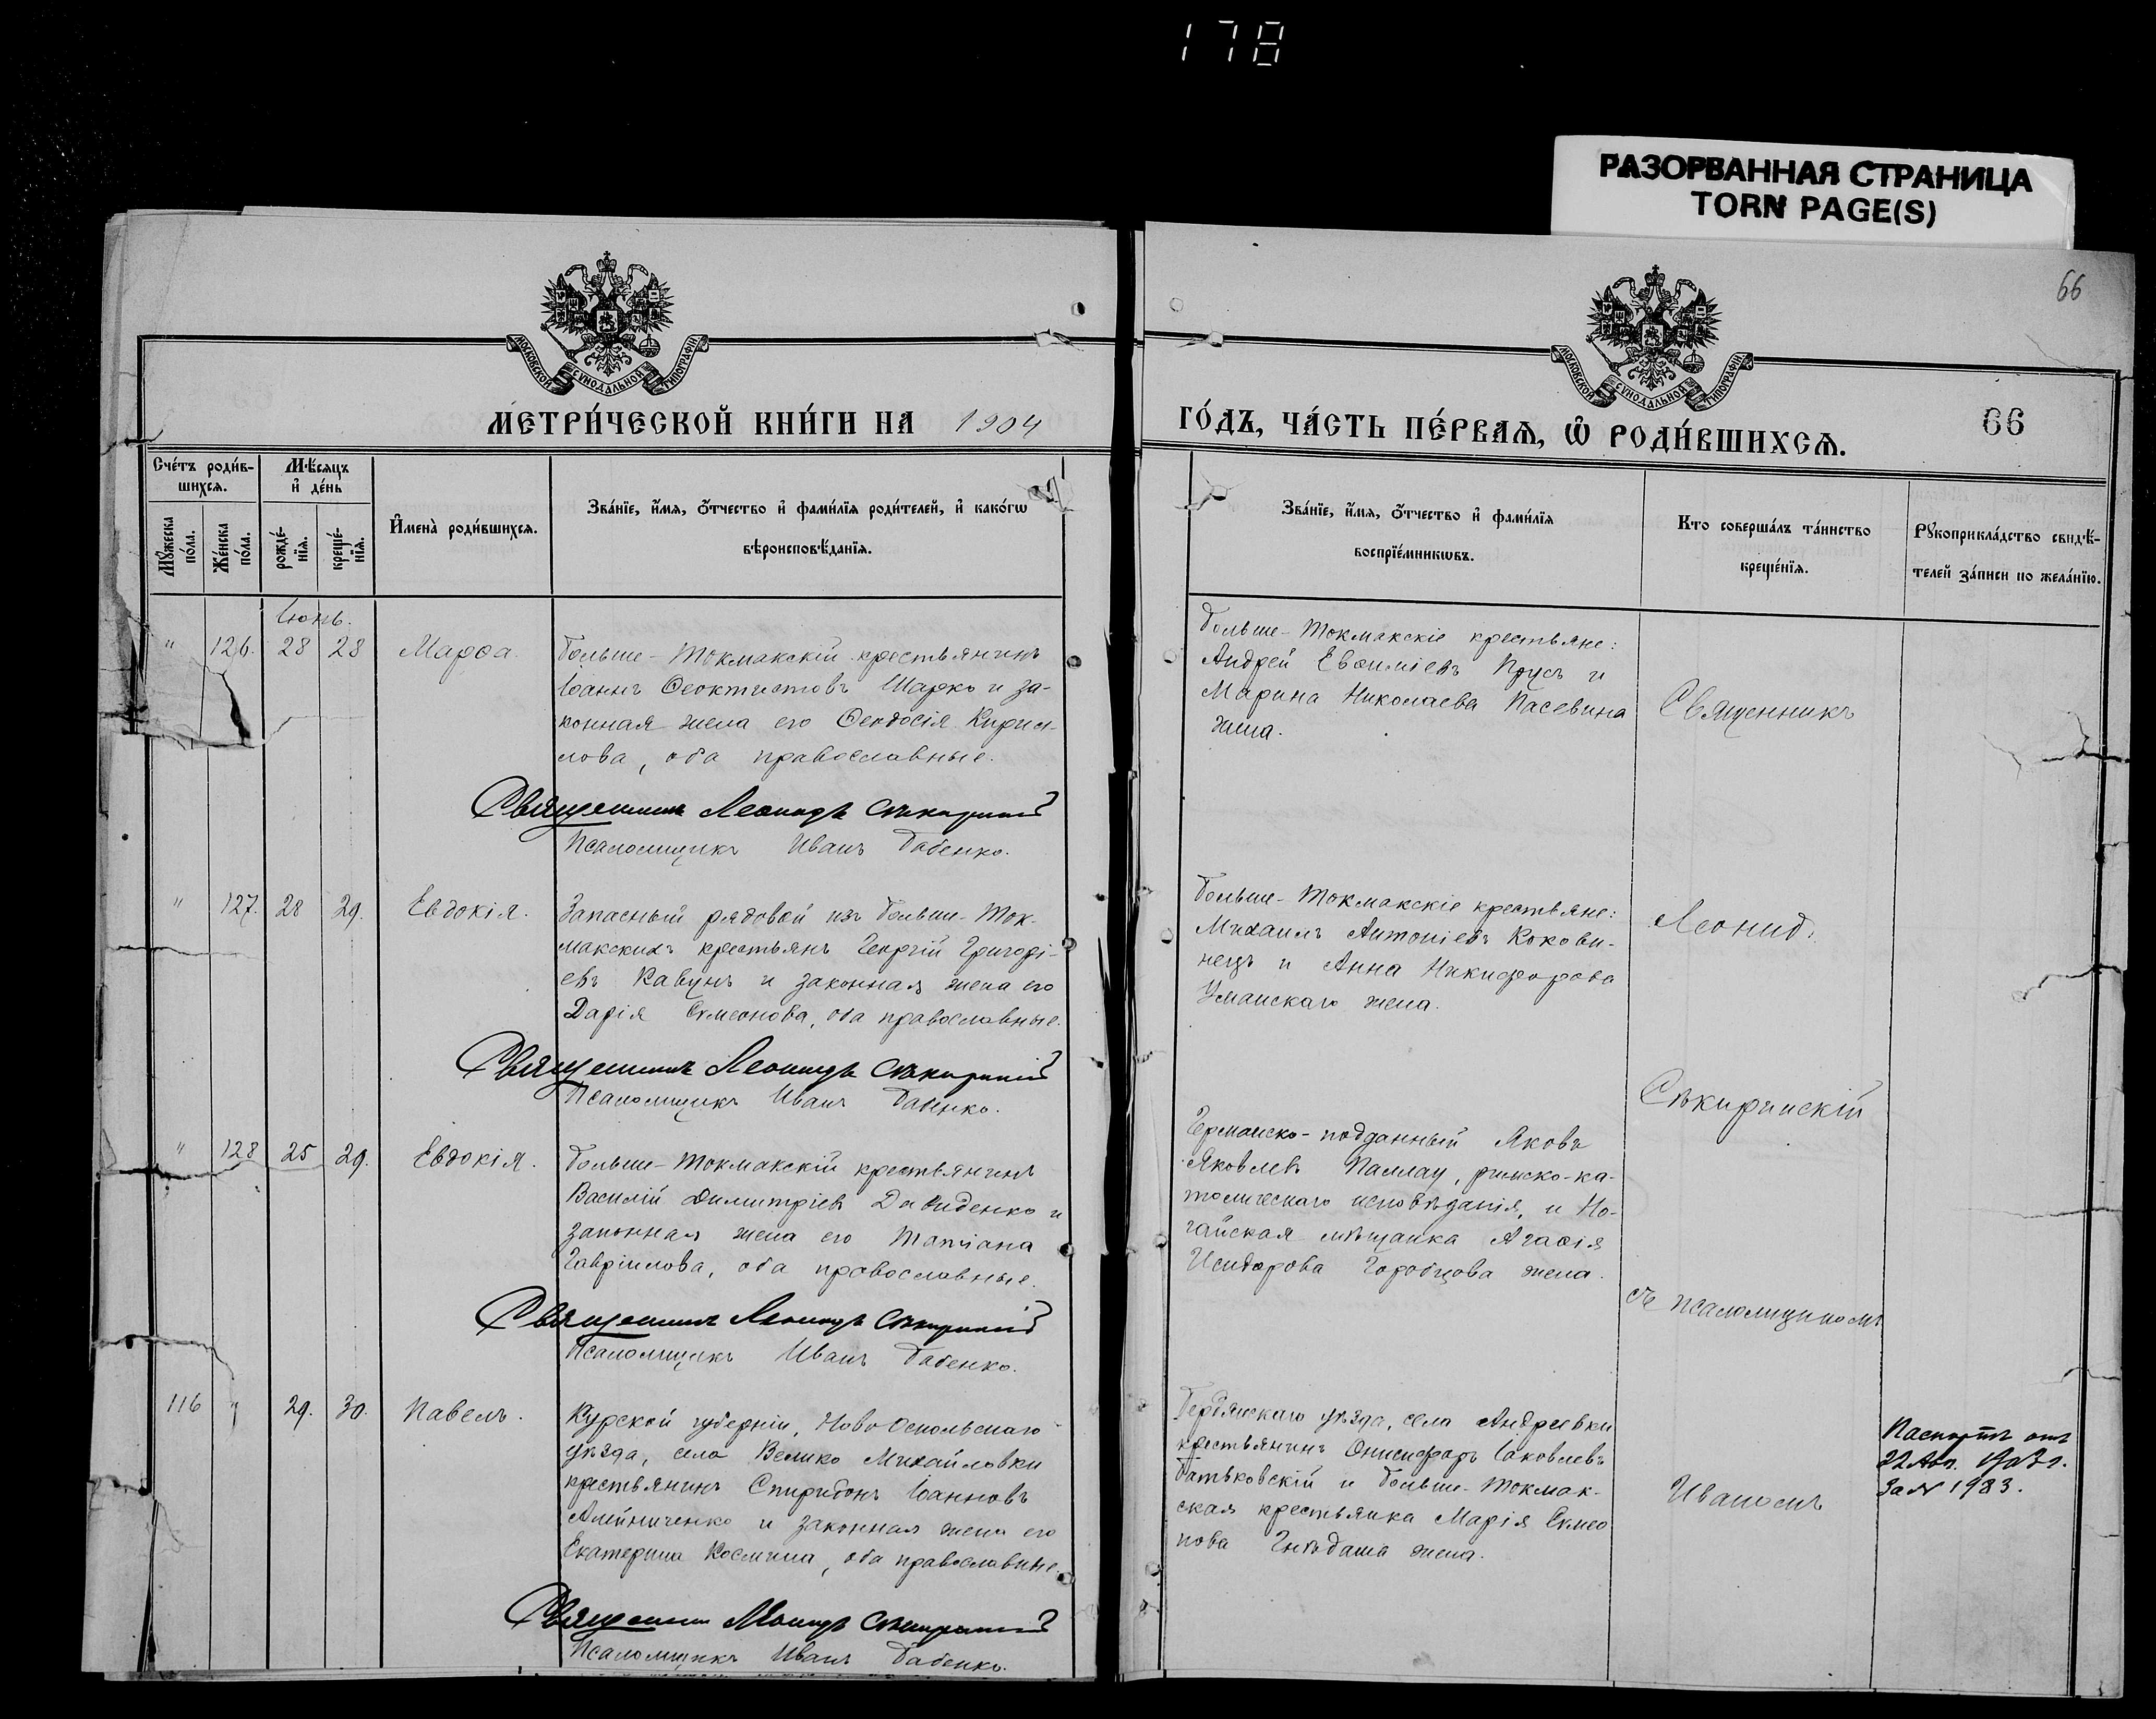 178
РАЗОРВАННАЯ СТРАНИЦА
TORN PAGE(S)
66
МОСКОВСКОЙ СУНОДАЛЬНОЙ ТИПОГРАФІИ
МОСКОВСКОЙ СУНОДАЛЬНОЙ ТИПОГРАФІИ
МЕТРИ́ЧЕСКОЙ КНИ́ГИ НА 1904
ГО́ДЪ, ЧА́СТЬ ПЕ́РВАѦ, Ѡ҆ РОДИ́ВШИХСѦ.
66
Сче́тъ роди́в-
шихсѧ.
Мѣ́сѧцъ
и҆ де́нь
Мꙋ́жеска
по́ла.
Же́нска
по́ла.
рожде́-
нїѧ.
креще́-
нїѧ.
И҆мена̀ роди́вшихсѧ.
Зва́нїе, и҆́мѧ, ѻ҆́тчество и҆ фами́лїѧ роди́телей, и҆ како́гѡ
вѣроисповѣ́данїѧ.
Зва́нїе, и҆́мѧ, ѻ҆́тчество и҆ фами́лїѧ
воспрїе́мникѡвъ.
Кто соверша́лъ та́инство
креще́нїѧ.
Рꙋкоприкла́дство свидѣ́-
телей за́писи по жела́нїю.
Іюнь.
" 126. 28 28 Марѳа.
Больше-Токмакскій крестьянинъ
Іоаннъ Ѳеоктистовъ Шарко и за-
конная жена его Ѳеодосія Кирил-
лова, оба православные.
Священникъ Леонидъ Сѣкиринскій
Псаломщикъ Иванъ Бабенко.
Больше-Токмакскіе крестьяне:
Андрей Евѳиміевъ Прусъ и
Марина Николаева Пасевина
жена.
Священникъ
" 127. 28 29. Евдокія.
Запасный рядовой изъ Больше-Ток-
макскихъ крестьянъ Георгій Григорі-
евъ Кавунъ и законная жена его
Дарія Симеонова, оба православные.
Священникъ Леонидъ Сѣкиринскій
Псаломщикъ Иванъ Бабенко.
Больше-Токмакскіе крестьяне:
Михаилъ Антоніевъ Кокови-
нецъ и Анна Никифорова
Уманскаго жена.
Леонид.
Сѣкиринскій
" 128 25 29. Евдокія.
Больше-Токмакскій крестьянинъ
Василій Димитріевъ Давиденко и
законная жена его Татіана
Гавріилова, оба православные.
Священникъ Леонидъ Сѣкиринскій
Псаломщикъ Иванъ Бабенко.
Германско-подданный Яковъ
Яковлевъ Паллау, римско-ка-
толическаго исповѣданія, и Но-
гайская мѣщанка Агаѳія
Исидорова Горобцова жена.
съ псаломщикомъ
116 " 29. 30. Павелъ.
Курской губерніи, Ново Оскольскаго
уѣзда, села Велико Михайловки
крестьянинъ Спиридонъ Іоанновъ
Алейниченко и законная жена его
Екатерина Космина, оба православные.
Священникъ Леонидъ Сѣкиринскій
Псаломщикъ Иванъ Бабенко.
Бердянскаго уѣзда, села Андреевки
крестьянинъ Онисифоръ Іаковлевъ
Батьковскій и Больше-Токмак-
ская крестьянка Марія Симео
нова Гнѣдаша жена.
Иваномъ
Паспортъ отъ
22 Авг.
За № 1983.